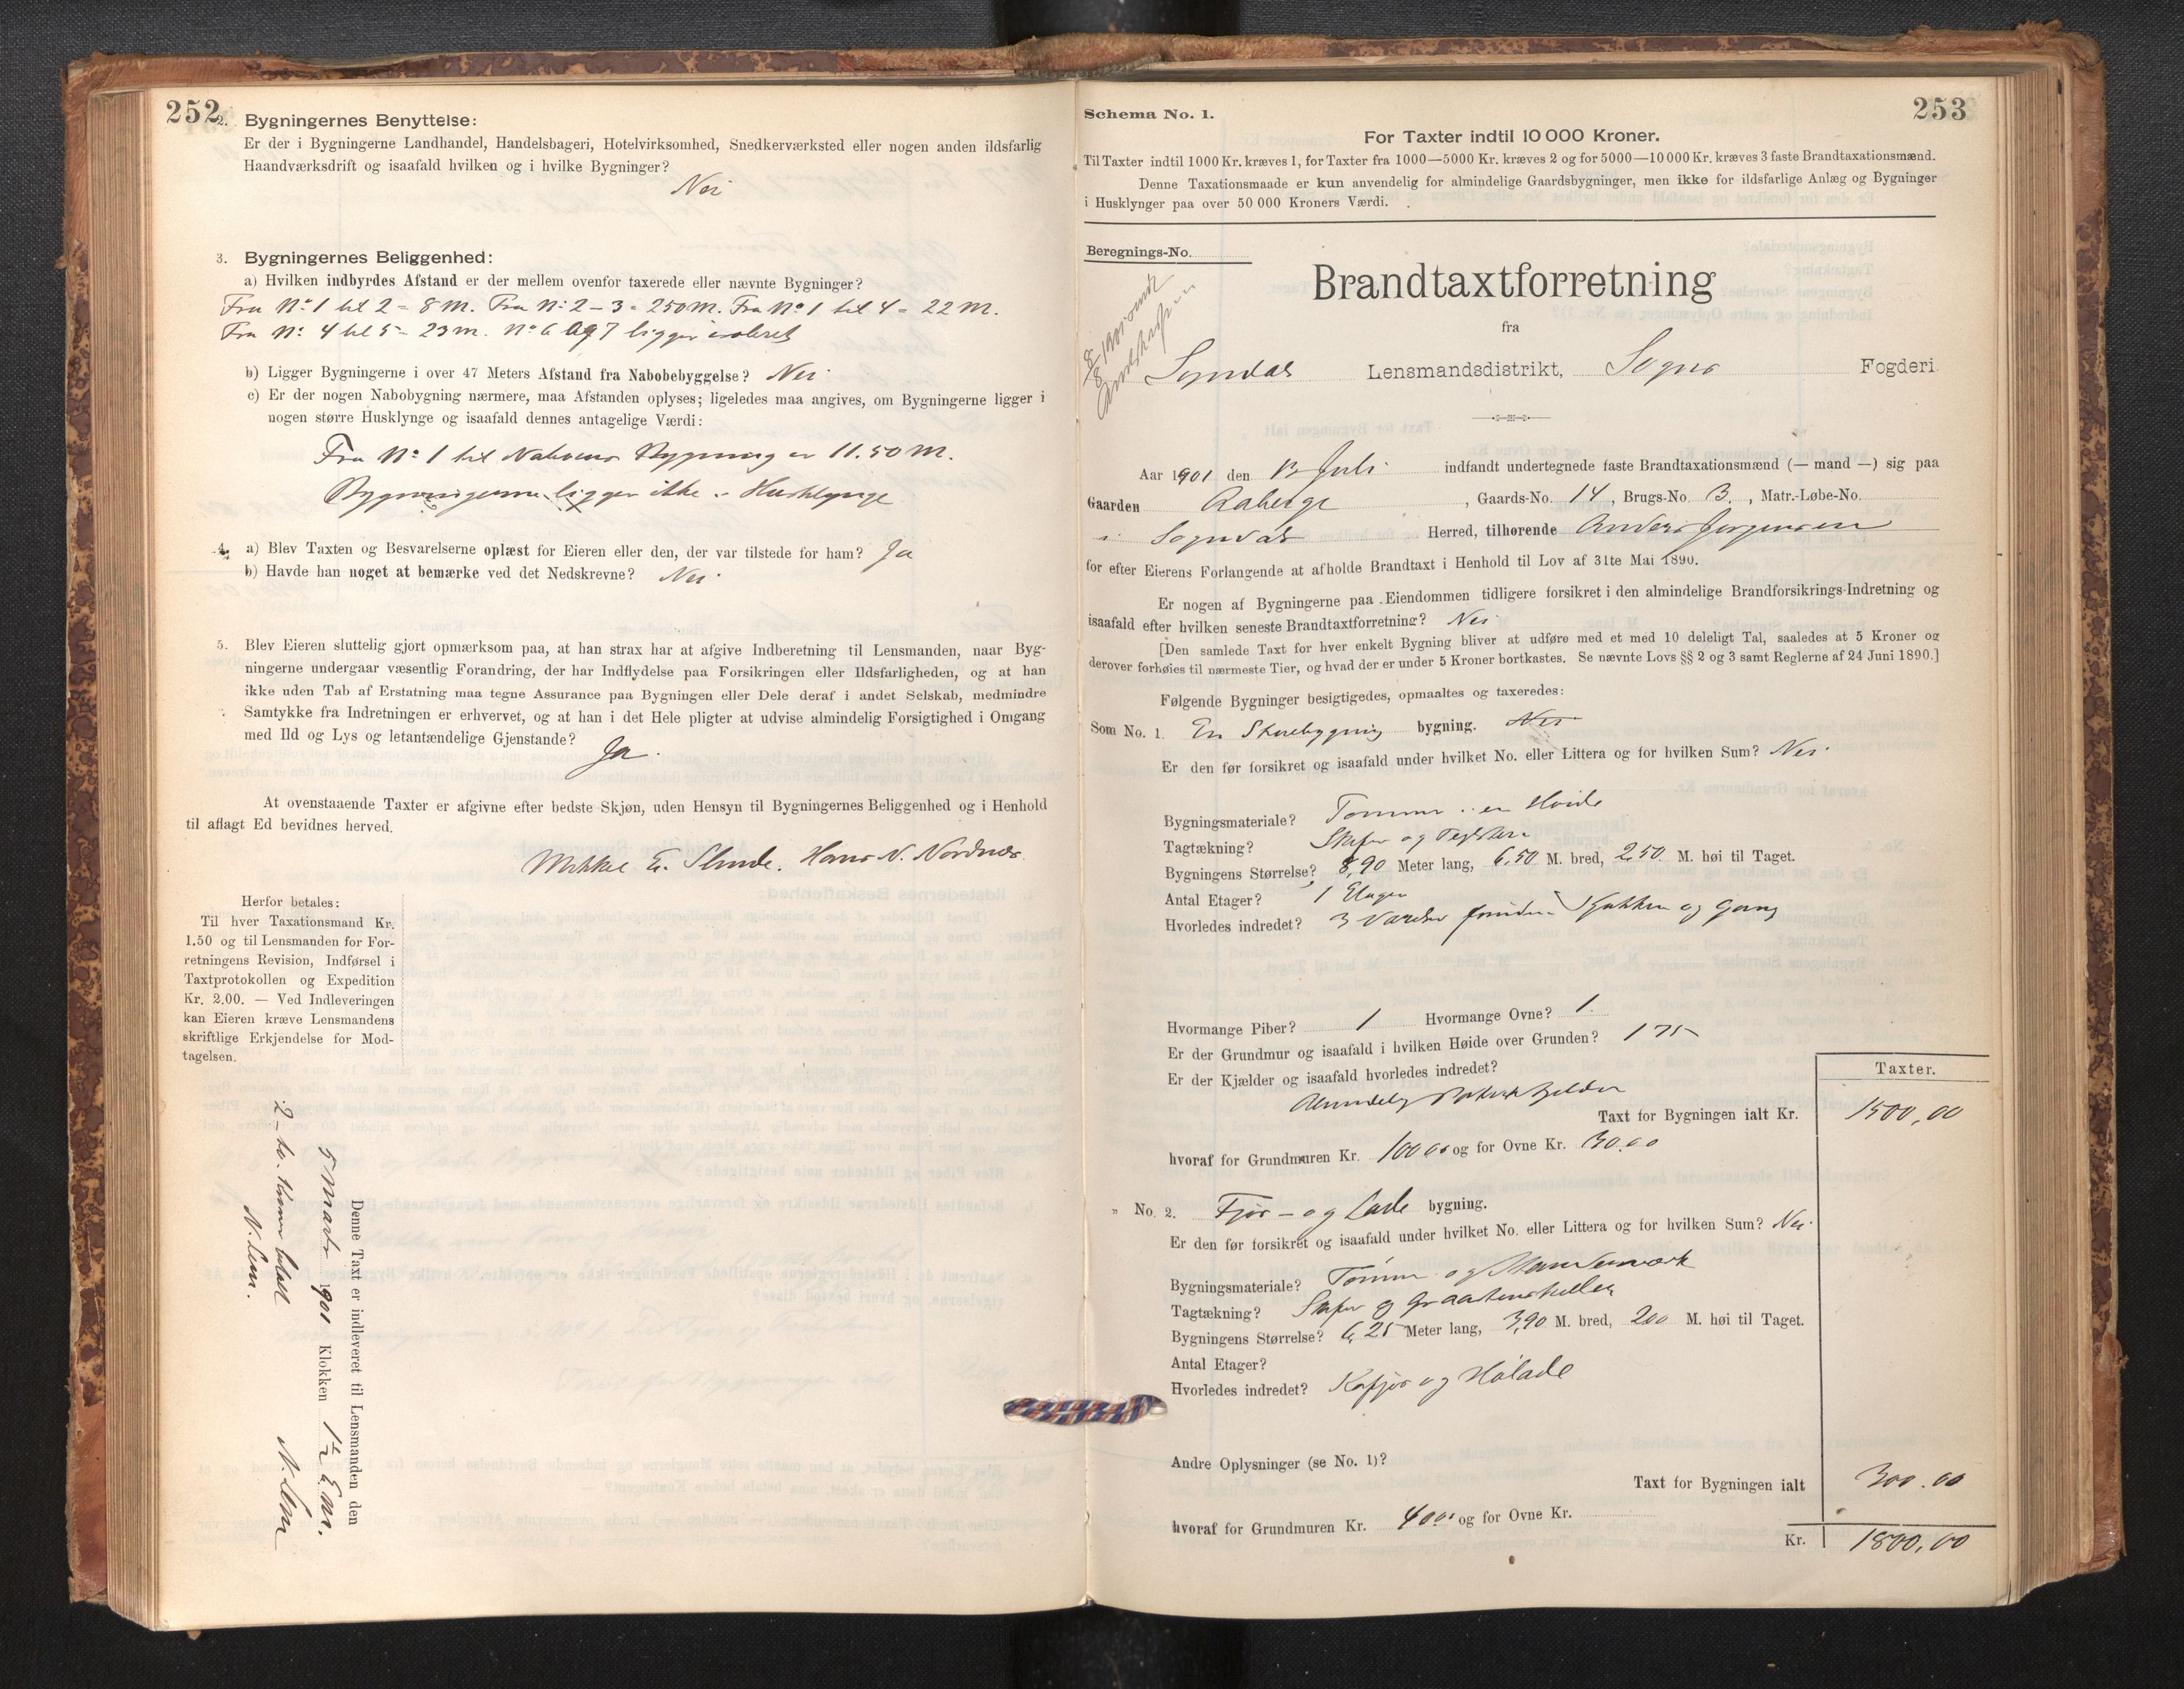 252
2. Bygningernes Benyttelse:
Er der i Bygningerne Landhandel, Handelsbageri, Hotelvirksomhed, Snedkerværksted eller nogen anden ildsfarlig
Haandværksdrift og isaafald hvilken og i hvilke Bygninger?
Nei
3. Bygningernes Beliggenhed:
a) Hvilken indbyrdes Afstand er der mellem ovenfor taxerede eller nævnte Bygninger?
Fra No 1 til 2 = 8 M. Fra No 2 – 3 = 250 M. Fra No 1 til 4 = 22 M.
Fra No 4 til 5 = 23 m. No 6 og 7 ligger isoleret
b) Ligger Bygningerne i over 47 Meters Afstand fra Nabobebyggelse? Nei
c) Er der nogen Nabobygning nærmere, maa Afstanden oplyses; ligeledes maa angives, om Bygningerne ligger i
nogen større Husklynge og isaafald dennes antagelige Værdi:
Fra No 1 til Naboens Bygning er 11.50 M.
Bygningerne ligger ikke i Husklynge
4. a) Blev Taxten og Besvarelserne oplæst for Eieren eller den, der var tilstede for ham? Ja
b) Havde han noget at bemærke ved det Nedskrevne? Nei
5. Blev Eieren sluttelig gjort opmærksom paa, at han strax har at afgive Indberetning til Lensmanden, naar Byg-
ningerne undergaar væsentlig Forandring, der har Indflydelse paa Forsikringen eller Ildsfarligheden, og at han
ikke uden Tab af Erstatning maa tegne Assurance paa Bygningen eller Dele deraf i andet Selskab, medmindre
Samtykke fra Indretningen er erhvervet, og at han i det Hele pligter at udvise almindelig Forsigtighed i Omgang
med Ild og Lys og letantændelige Gjenstande?
Ja.
At ovenstaaende Taxter er afgivne efter bedste Skjøn, uden Hensyn til Bygningernes Beliggenhed og i Henhold
til aflagt Ed bevidnes herved.
Mikkel E. Slinde. Hans N. Nordnæs
Herfor betales:
Til hver Taxationsmand Kr.
1.50 og til Lensmanden for For-
retningens Revision, Indførsel i
Taxtprotokollen og Expedition
Kr. 2.00. — Ved Indleveringen
kan Eieren kræve Lensmandens
skriftlige Erkjendelse for Mod-
tagelsen.
Denne Taxt er indleveret til Lensmanden den
5 Marts 1901 Klokken 12 Em.
N. Lem
2 – to. Kroner betalt
N. Lem.
253
Schema No. 1.
For Taxter indtil 10 000 Kroner.
Til Taxter indtil 1000 Kr. kræves 1, for Taxter fra 1000—5000 Kr. kræves 2 og for 5000—10 000 Kr. kræves 3 faste Brandtaxationsmænd.
Denne Taxationsmaade er kun anvendelig for almindelige Gaardsbygninger, men ikke for ildsfarlige Anlæg og Bygninger
i Husklynger paa over 50 000 Kroners Værdi.
Beregnings-No.
Brandtaxtforretning
fra
Sogndal Lensmandsdistrikt, Sogns Fogderi.
Aar 1901 den 13 Juli indfandt undertegnede faste Brandtaxationsmænd (— mand —) sig paa
Gaarden Aaberge, Gaards-No. 14, Brugs-No. 3., Matr.-Løbe-No.
i Sogndals Herred, tilhørende Anders Jørgensen
for efter Eierens Forlangende at afholde Brandtaxt i Henhold til Lov af 31te Mai 1890.
Er nogen af Bygningerne paa Eiendommen tidligere forsikret i den almindelige Brandforsikrings-Indretning og
isaafald efter hvilken seneste Brandtaxtforretning? Nei
[Den samlede Taxt for hver enkelt Bygning bliver at udføre med et med 10 deleligt Tal, saaledes at 5 Kroner og
derover forhøies til nærmeste Tier, og hvad der er under 5 Kroner bortkastes. Se nævnte Lovs §§ 2 og 3 samt Reglerne af 24 Juni 1890.]
Følgende Bygninger besigtigedes, opmaaltes og taxeredes:
Som No. 1. En Stuebygning bygning. Nei
Er den før forsikret og isaafald under hvilket No. eller Littera og for hvilken Sum? Nei
Bygningsmateriale? Tømmer i en Høide
Tagtækning? Skifer og Teglsten
Bygningens Størrelse? 8,90 Meter lang, 6,50 M. bred, 2,50 M. høi til Taget.
Antal Etager? 1 Etager
Hvorledes indredet? 3 Værelser foruden Kjøkken og Gang
Hvormange Piber? 1 Hvormange Ovne? 1.
Er der Grundmur og isaafald i hvilken Høide over Grunden? 1 75
Er der Kjælder og isaafald hvorledes indredet?
Almindelig Potetkjelder
Taxter.
Taxt for Bygningen ialt Kr. 1500,00
hvoraf for Grundmuren Kr. 100 00 og for Ovne Kr. 30.00
" No. 2. Fjøs - og Lade bygning.
Er den før forsikret og isaafald under hvilket No. eller Littera og for hvilken Sum? Nei
Bygningsmateriale? Tømmer og Standerværk
Tagtækning? Skifer og Graastensheller
Bygningens Størrelse? 6,25 Meter lang, 3,90 M. bred, 200 M. høi til Taget.
Antal Etager?
Hvorledes indredet? Kofjøs og Hølade
Andre Oplysninger (se No. 1)?
Taxt for Bygningen ialt 300.00
hvoraf for Grundmuren Kr. 40 00 og for Ovne Kr.
Kr. 1800,00